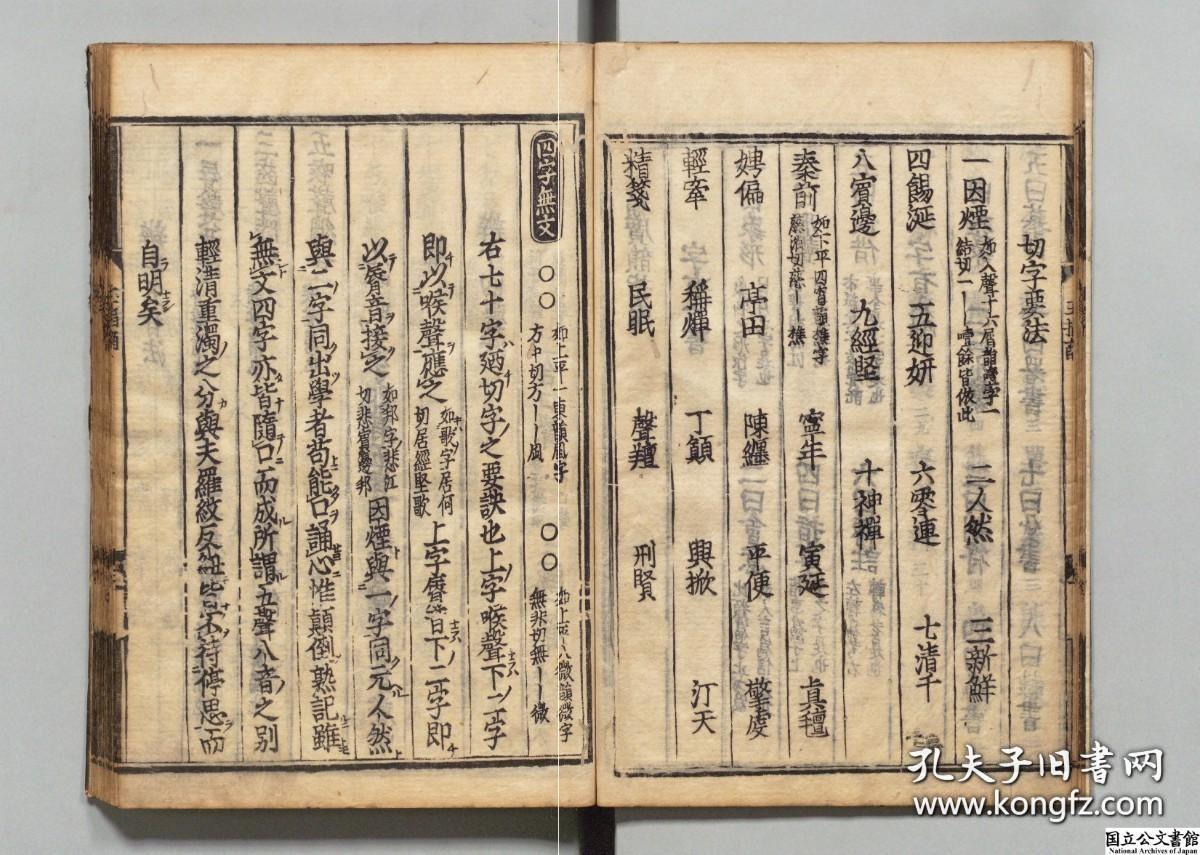 切字要法
一因煙 如入聲十六屑韻噎字一結切一丨噎餘皆倣此 二人然 三新鮮
四餳涎 五迎妍 六零連 七清千
八賓邊 九經堅 十神禪
秦前 如下平四宵韻樵字慈消切慈丨樵 寧年 寅延 真氊
娉偏 亭田 陳纏 平便 擎虔
輕牽 稱燀 丁顛 興掀 汀天
精箋 民眠 聲羶 刑賢
四字無文 〇〇 如上平一東韻風字方中切方丨丨風 〇〇 如上平八微韻微字無非切無丨丨微
右七十字廼切字之要訣也上字喉聲下二字
即以喉聲應之 如歌字居何切居經堅歌 上字脣音下二字即
以脣音接之 如邦字悲江切悲賓邊邦 因煙與一字同元人然
與二字同出學者苟能口誦心惟顛倒熟記雖
無文四字亦皆隨口而成所謂五聲八音之別
輕清重濁之分與夫羅紋反紐皆不待停思而
自明矣
孔夫子旧书网
www.kongfz.com
国立公文書館
National Archives of Japan